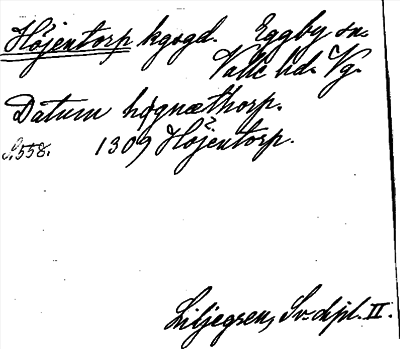 Höjentorp kgsgd. Eggby sn.
Valle hd. Vg.
Datum høgnæthorp.
S. 558. 1309 Höjentorp.
Liljegren, Sv. dipl. II.